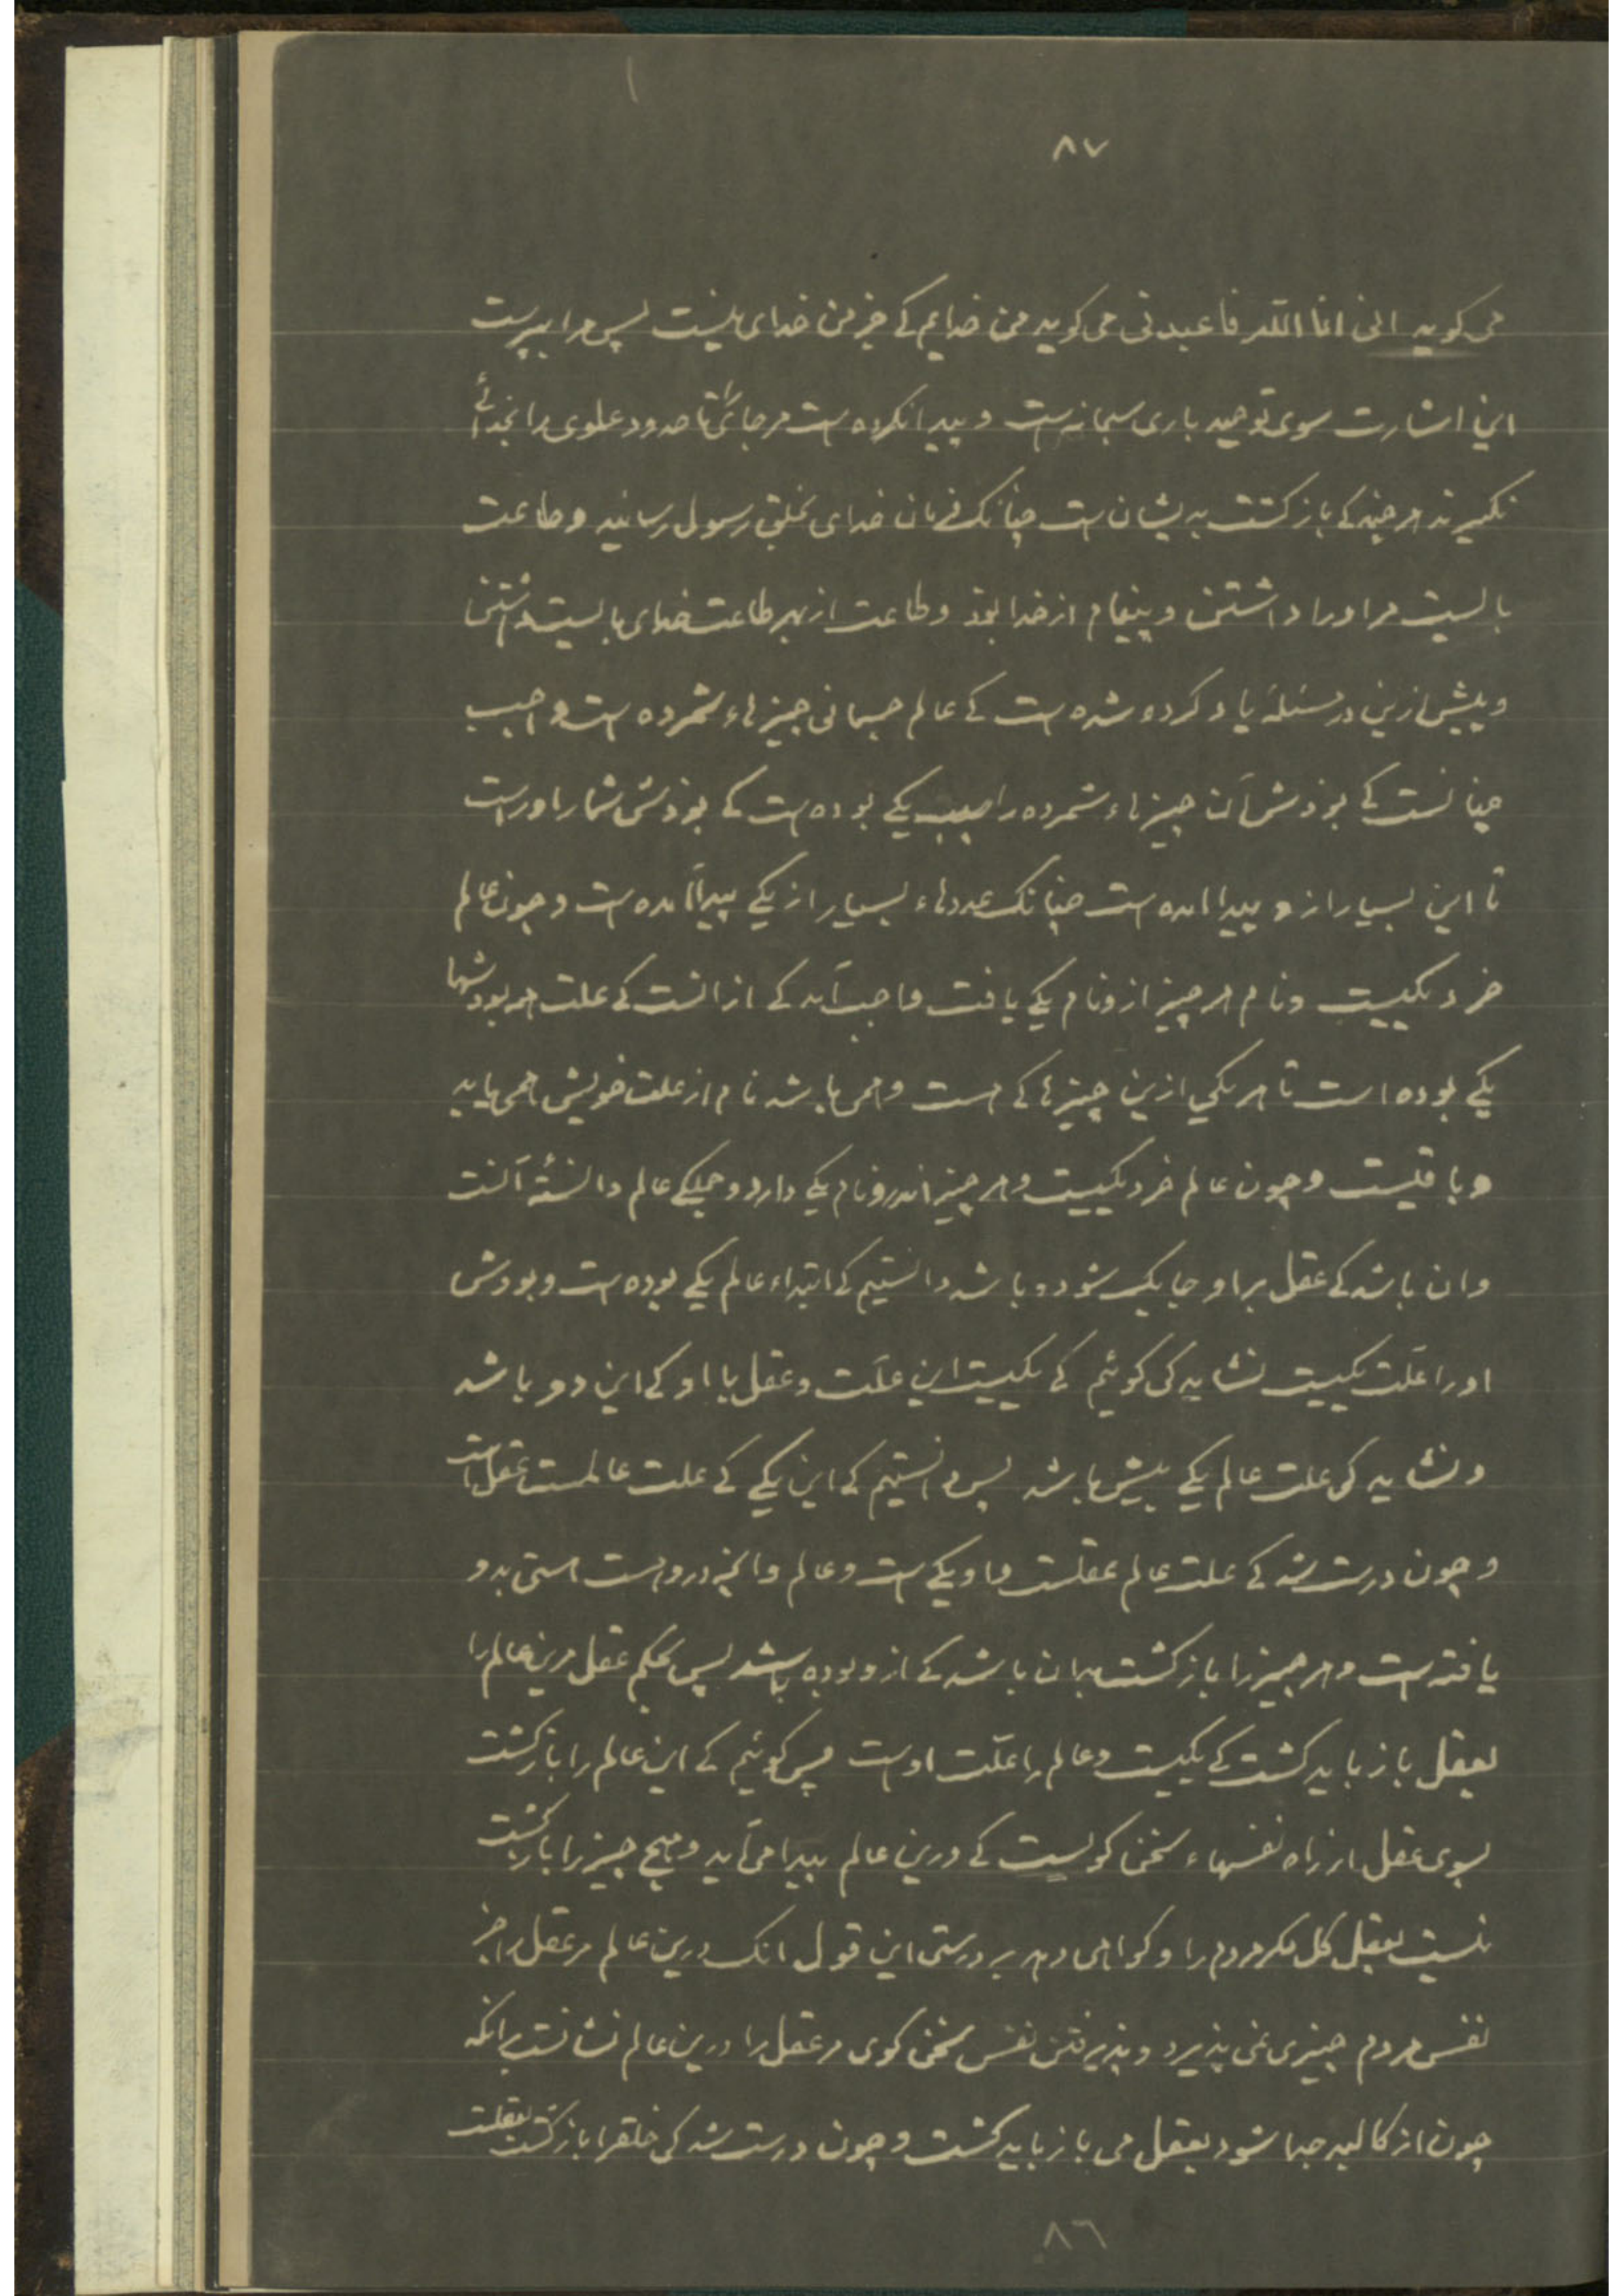 ۸۷
می کوید انی انا الله فاعبدنی می کوید من خدایم کے جز من خدای نیست پس مرا بپرست
این اشارت سوی توحید باری سبحانه است و پیدا نکرده است مر جائی را تا حدود علوی را بخدائے
نکیرند هر چند کے باز کشت بدیشان است چنانک فرمان خدای بخلق رسول رسانید و طاعت
بالیست مر او را داشتن و پیغام از خدا بوذ و طاعت از بهر طاعت خدای بالیست داشتن
و پیش ازین در مسئلهٔ یاد کرده شده است کے عالم جسمانی چیزهاء شمرده است واجب
چنانست کے بوذش آن چیزهاء شمرده را سبب یکے بوده است کے بوذش شمار اوراست
تا این بسیار از و پیدا امده است چنانک عددهاء بسیار از یکے پیدا آمده است و چون عالم
خرد یکیست و نام هر چیز از و نام یکے یافت واجب آید کے از انست کے علت همه بودشها
یکے بوده است تا هر یکی ازین چیزهائے کے هست و همی باشد نام از علت خویش همی یابد
و باقیست و چون عالم خرد یکیست و هر چیز اندرو نام یکے دارد و جملکے عالم دانستهٔ آنست
وان باشد کے عقل بر او جایک شود و باشد دانستیم کے ابتداء عالم یکے بوده است و بودش
او را علت یکیست نشاید کی کوئیم کے یکیست این علت و عقل با او کے این دو باشد
و نشاید کی علت عالم یکے بیش باشد پس دانستیم کے این یکے کے علت عالمست عقل است
و چون درست شد کے علت عالم عقلست و او یکے است و عالم وانچه دروست هستی بدو
یافته است و هر چیز را باز کشت بدان باشد کے از و بوده باشد پس بحکم عقل مرین عالم را
بعقل باز باید کشت کے یکیست و عالم را علت اوست پس کوئیم کے این عالم را باز کشت
بسوی عقل از راه نفسهاء سخن کویست کے درین عالم پیدا می آید و هیچ چیز را باز کشت
نیست بعقل کل مکر مردم را و کواهی دهد بر درستی این قول انک درین عالم مر عقل را جز
نفس مردم چیزی نمی پذیرد و پذیرفتن نفس سخن کوی مر عقل را درین عالم نشانست برانکه
چون از کالبد جدا شود بعقل می باز باید کشت و چون درست شد کی خلق را باز کشت بعقلست
۸٦